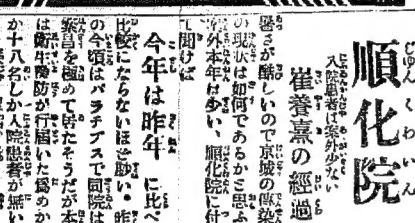 順化院
入院患者は案外少ない
崔養熹の經過
暑さが酷しいので京城の傳染
の現状は如何であるかと思ふ
外本年は少い、順化院に付
て聞けば
今年は昨年に比べ
比較にならないほど少い。昨
の今頃はパラチブスで同院は
繁昌を極めて居たそうだが本
は衛生豫防が行届いた爲めか
か十八名しか入院患者が無い